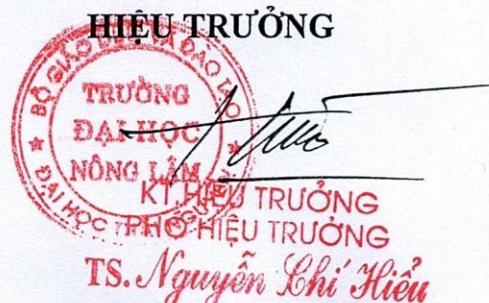 HIỆU TRƯỞNG
BỘ GIÁO DỤC VÀ ĐÀO TẠO
TRƯỜNG
ĐẠI HỌC
NÔNG LÂM
ĐẠI HỌC
KT HIỆU TRƯỞNG
PHÓ HIỆU TRƯỞNG
TS. Nguyễn Chí Hiểu